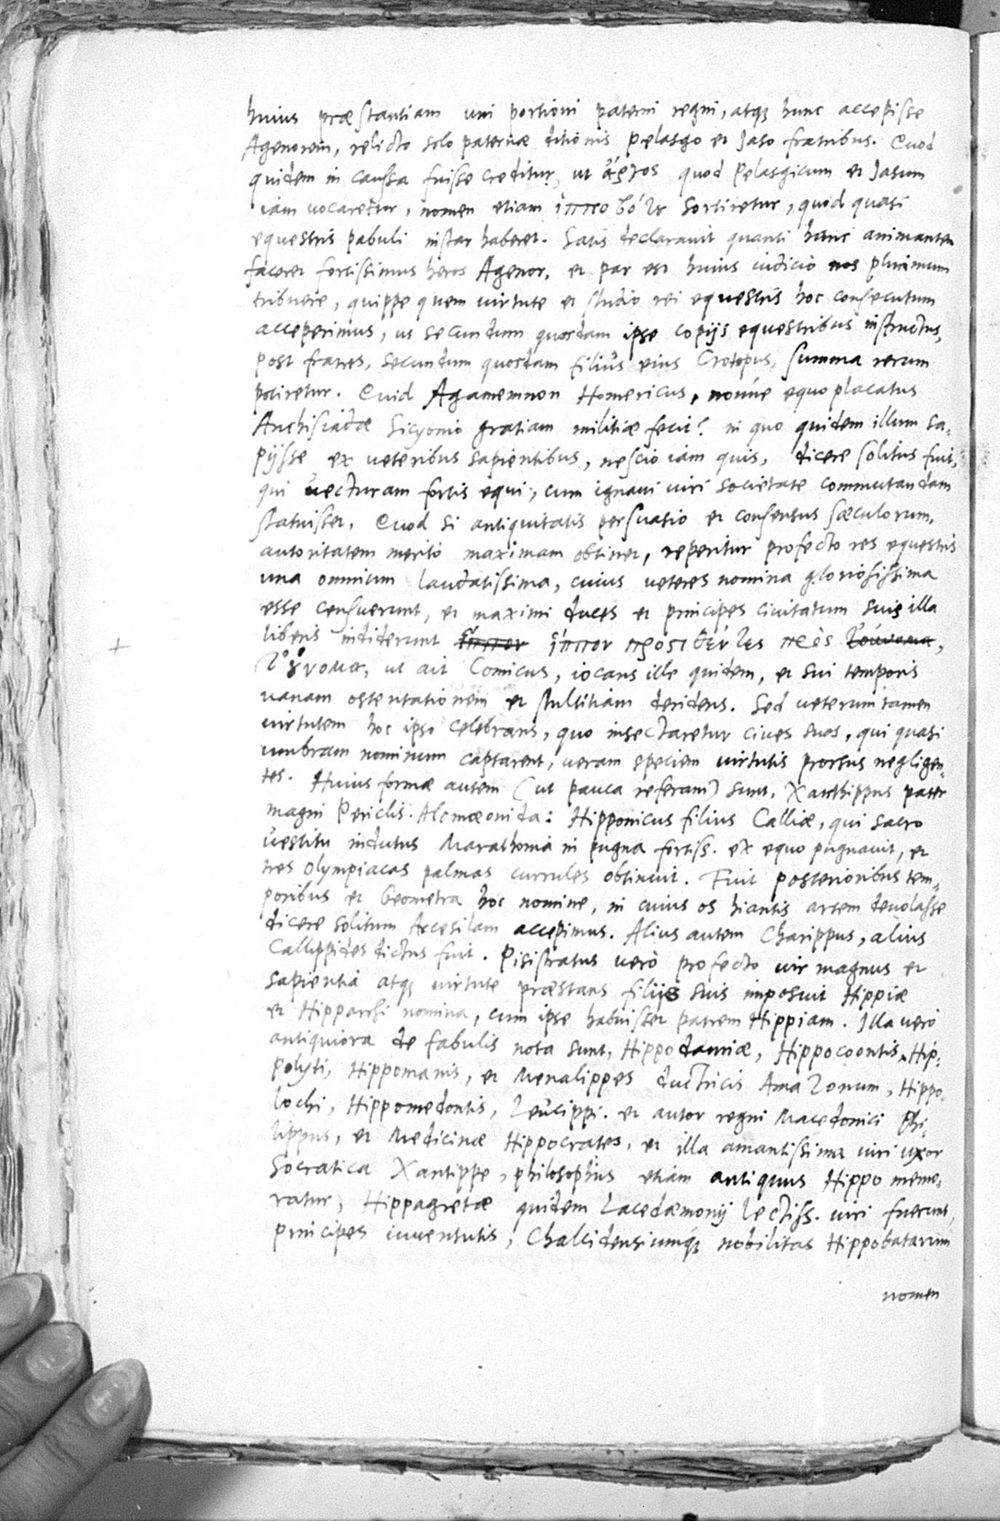 huius præstantiam uni portioni paterni regni, atq; hunc accepisse
Agenorem, relicto solo paternæ ditionis Pelasgo et Jaso fratribus. Quod
quidem in caussa fuisse creditur, ut ἄργος quod Pelasgicum et Jasum
iam vocaretur, nomen etiam ἱπποβότου sortiretur, quod quasi
equestris pabuli instar haberet. Satis declaravit quanti hunc animantem
faceret fortissimus heros Agenor, et par est huius iudicio nos plurimum
tribuere, quippe quem virtute et studio rei equestris hoc consecutum
acceperimus, ut secundum quosdam ipse copijs equestribus instructus,
post fratres, secundum quosdam filius eius Crotopus, summa rerum
potiretur. Quid Agamemnon Homericus, nonne equo placatus
Anchisiadæ Sicyonio gratiam militiæ fecit? in quo quidem illum sa-
pijsse ex veteribus sapientibus, nescio iam quis, dicere solitus fuit,
qui vecturam fortis equi, cum ignavi viri societate commutandam
statuisset. Quod si antiquitatis persuasio et consensus sæculorum,
autoritatem merito maximam obtinet, reperitur profecto res equestris
una omnium laudatissima, cuius veteres nomina gloriosissima
esse censuerunt, et maximi duces et principes civitatum suis illa
liberis indiderunt ἵππον ἵππον προστιθέντες πρὸς τοὔνομα,
τοὔνομα, ut ait Comicus, iocans ille quidem, et sui temporis
vanam ostentationem et stultitiam deridens. Sed veterum tamen
virtutem hoc ipso celebrans, quo insectaretur cives suos, qui quasi
umbram nominum captarent, veram speciem virtutis prorsus negligen-
tes. Huius formæ autem (ut pauca referam) sunt, Xanthippus pater
magni Periclis Alcmæonida: Hipponicus filius Calliæ, qui sacro
vestitu indutus Marathonia in pugna fortiss. ex equo pugnavit, et
tres Olympiacas palmas currules obtinuit. Fuit posterioribus tem-
poribus et Geometra hoc nomine, in cuius os hiantis artem devolasse
dicere solitum Arcesilam accepimus. Alius autem Charippus, alius
Callippides dictus fuit. Pisistratus vero profecto vir magnus et
sapientia atq; virtute præstans filijs suis imposuit Hippiæ
et Hipparchi nomina, cum ipse habuisset patrem Hippiam. Illa vero
antiquiora de fabulis nota sunt, Hippodamiæ, Hippocoontis, Hip-
polyti, Hippomanis, et Menalippes ductricis Amazonum, Hippo-
lochi, Hippomedontis, Leucippi. et autor regni Macedonici Phi-
lippus, et Medicinæ Hippocrates, et illa amantissima viri uxor
Socratica Xantippe, philosophus etiam antiquus Hippo memo-
ratur, Hippagretæ quidem Lacedæmonij lectiss. viri fuerunt,
principes iuventutis, Chalcidensiumq; nobilitas Hippobatarum
nomen